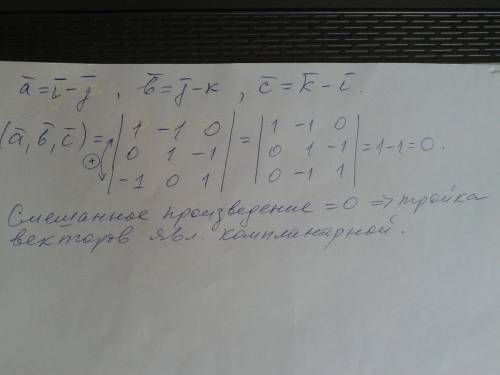 a̅ = i̅ - j̅ , b̅ = j̅ - k , c̅ = k̅ - i̅.
(a̅, b̅, c̅) = | 1 -1 0 | = | 1 -1 0 | = 1-1 = 0.
| 0 1 -1 | | 0 1 -1 |
⊕ | -1 0 1 | | 0 -1 1 |
Смешанное произведение = 0 ⇒ тройка
векторов явл. компланарной.